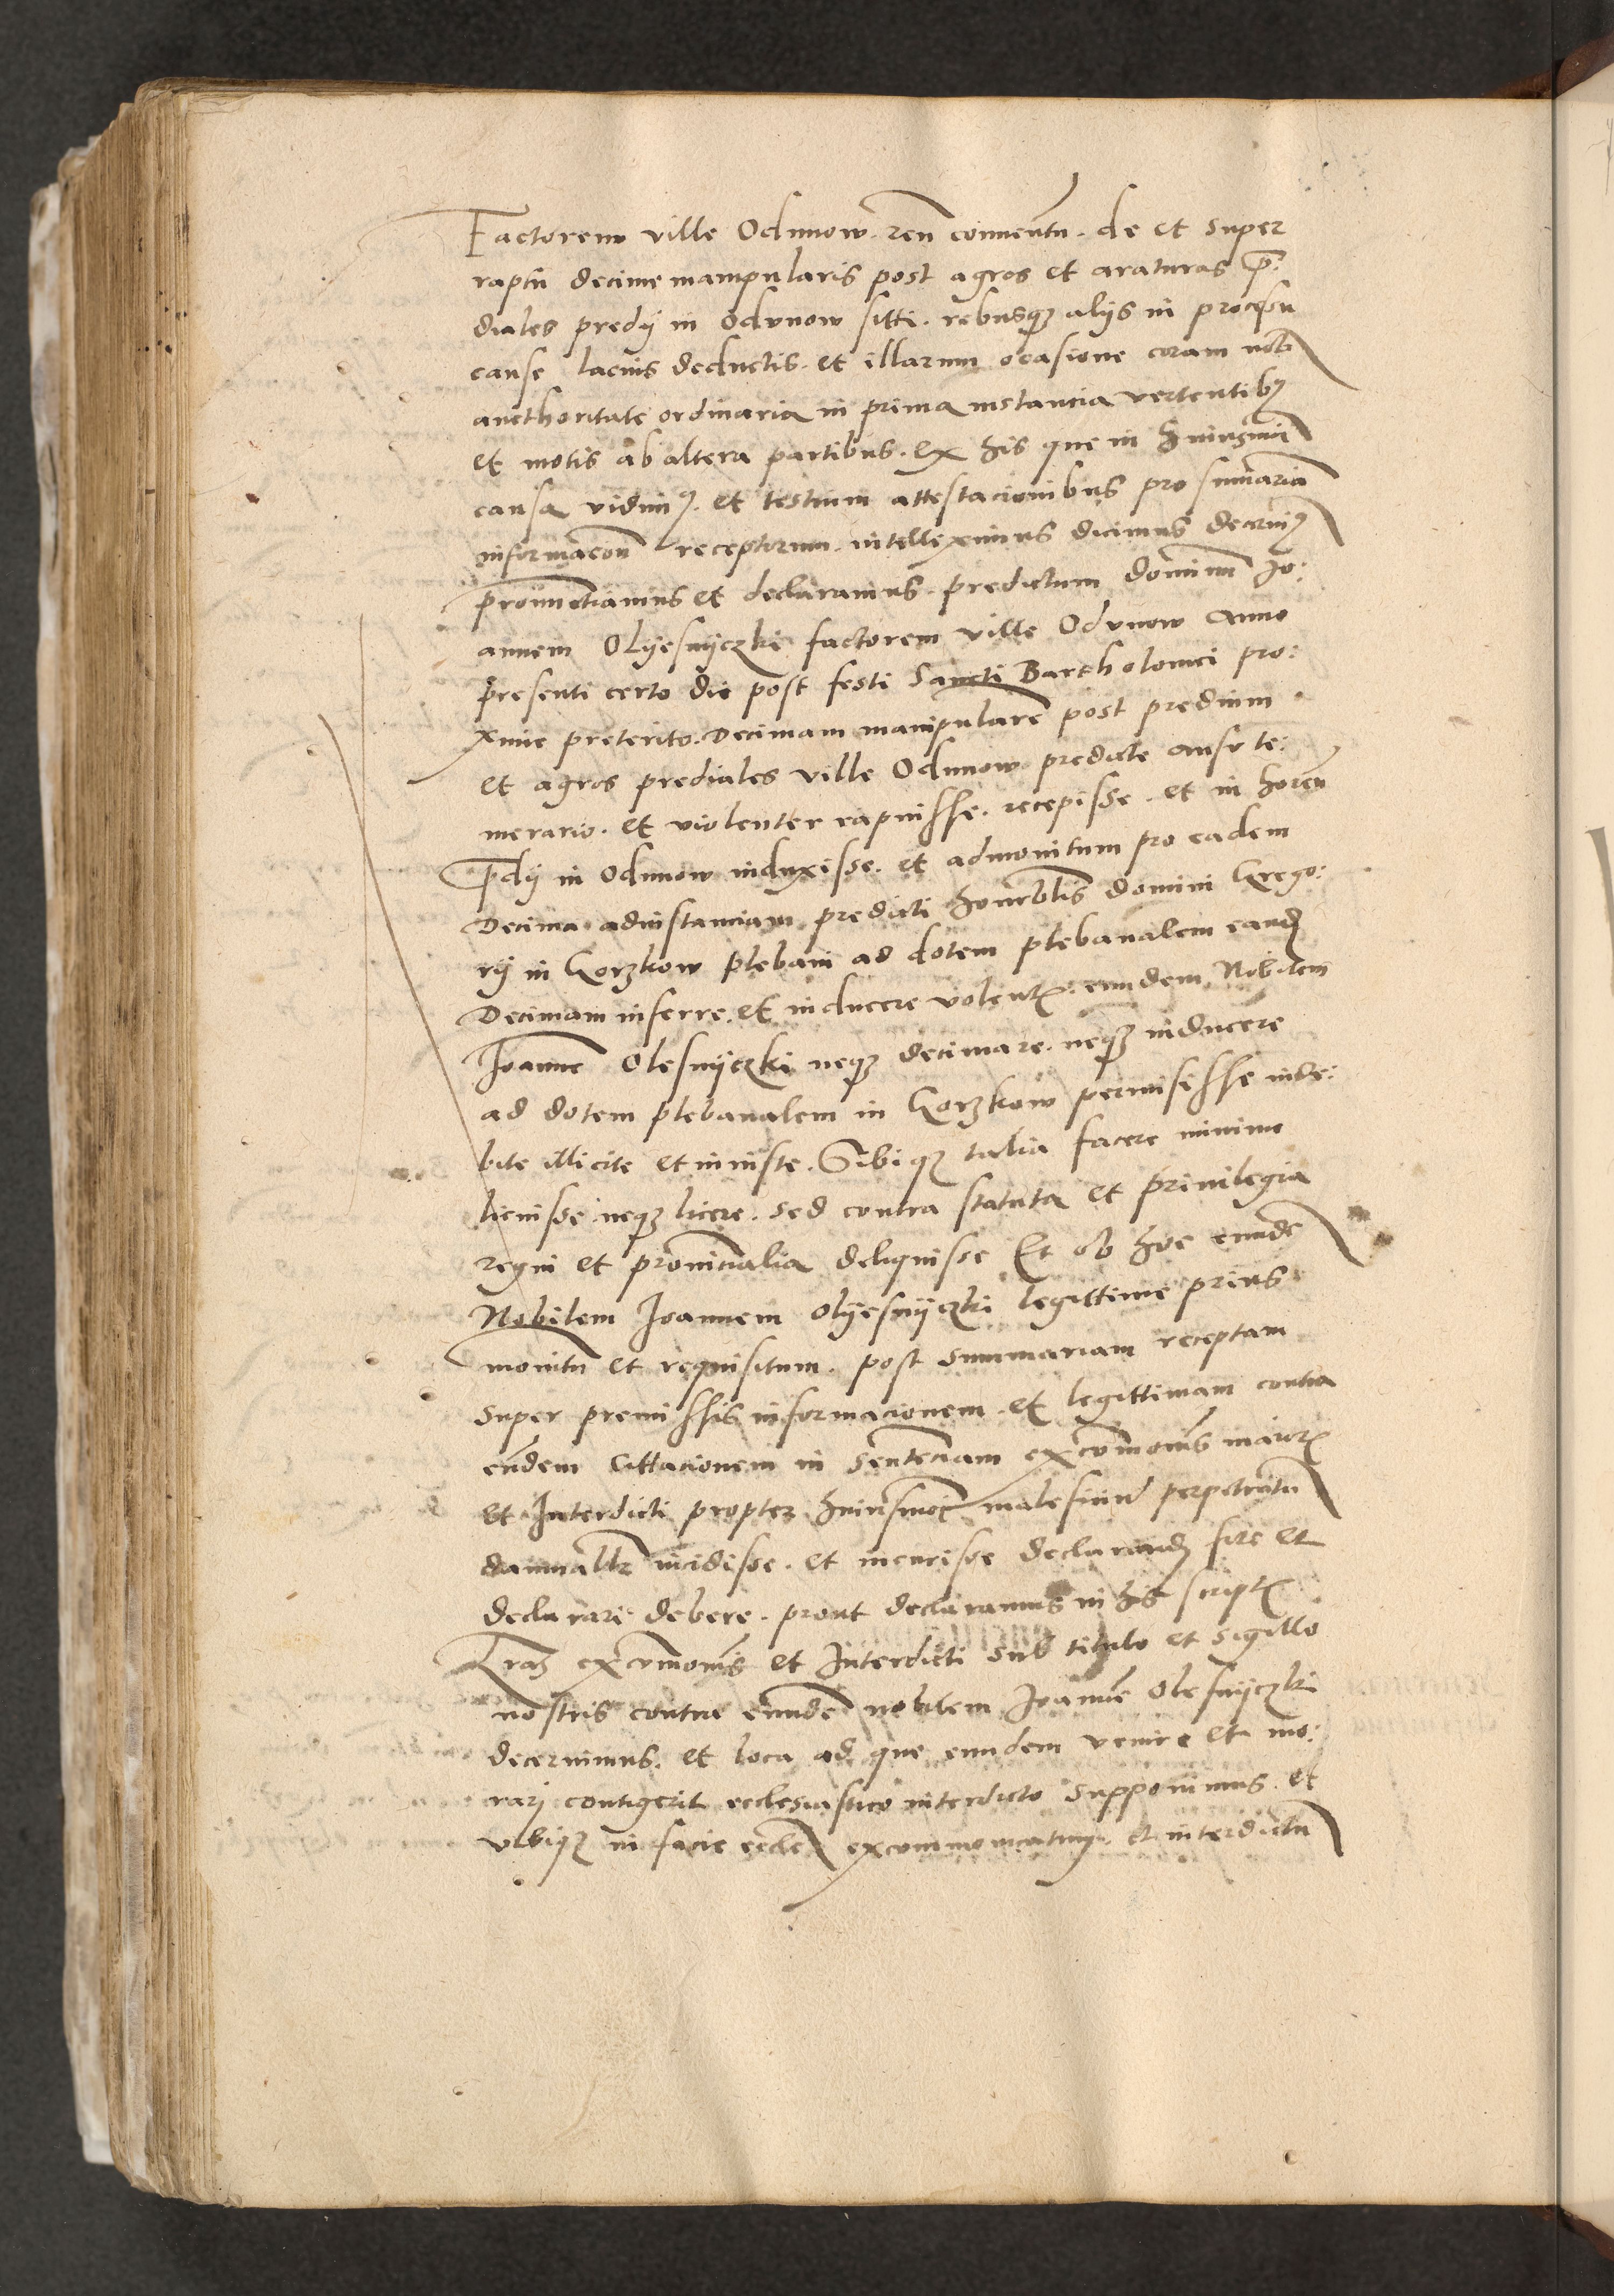 Factorem ville Odunow. reū conuentū. de et super
raptū decime manipularis post agros et araturas p̄:
diales predij in Odvnow sitti. rebusqȝ alijs in processu
cause lacius deductis. et illarum ocasione coram nob
aucthoritate ordinaria in prima instancia vertentibȝ
et motis ab altera partibus. ex his que in huiusmōi
causa vidimꝰ. et testium attestacionibus pro summariā
informacōn receptorum. intelleximus dicimus decernimꝰ
pronunctiamus et declaramus. predictum dominū Jo:
annem Olyesnyczki factorem ville Odvnow Anno
presenti certo die post festi Sancti Bartholomei pro:
xime preterito. Decimam manipularē post predium
et agros prediales ville Odunow predicte ausv te:
merario. et violenter rapuisse. recepisse. et in horeū
p̄dij in Odunow induxisse. et admonitum pro eadem
Decima adinstanciam predicti honorabilis domini Grego:
rij in Gorzkow plebani ad dotem plebanalem eandē
Decimam inferre. et inducere volentꝭ. eundem Nobilem
Joannē Olesnyczki neqȝ decimare. neqȝ inducere
ad dotem plebanalem in Gorzkow permisisse inde:
bite illicite et iniuste. Sibiqȝ talia facere minime
licuisse neqȝ licere. Sed contra statuta et priuilegia
regni et prouincialia deliquisse Et ob hoc eundē
Nobilem Joannem Olyesnyczki legittime prius
monitū et requisitum. post summariam receptam
super premissis informacionem. et legittimam contra
eūdem Cittacionem in sentenciam excōmōnis maiorꝭ
et Interdicti propter huiusmōi maleficiū perpetratū
damnablr incidisse. et incurrisse declarandū fore et
declarari debere. prout declaramus in his scriptꝭ
Lrās excōmōnis et Interdicti sub titulo et sigillo
nostris contra eundē nobilem Joannē Olesnyczki
decernimus. et loca ad que eundem venire et mo:
rari contigerit ecclesiastico interdicto supponimus. et
vbiqȝ in facie eccle excommonicatum. et interdictū